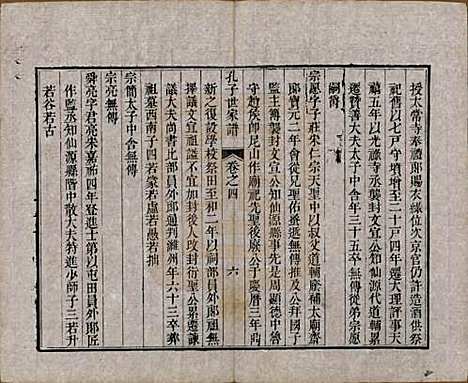 授太常寺奉禮郎賜衣緣位次京官仍許造酒供祭
祀舊以七戶守墳增至二十戶四年遷大理評事天
禧五年以光祿寺丞襲封文宣公知仙源代道輔累
遷贊善大夫太子中舍年三十五卒無傳從弟宗愿
嗣衍
宗愿字子莊朱仁宗天聖中以叔父道輔廕補太廟齋
郎寶元二年會從兄聖佑逝無傳推恩以公拜國子
監主簿襲封文宣公知仙源縣事先是周顯德中曾
守趙侯師尼山作廟祀先聖後廢公于慶曆三年間
新之復設學校祭田至和二年以祠部員外郎太常
博士祖無擇議文宣諡號不可加後人改封衍聖公累遷諫
議大夫尚書比部員外郎通判濰州年六十三卒葬
祖墓西南子四若蒙若虛若愚若拙
宗簡太子中舍無傳
宗亮無傳
舜亮字君亮朱嘉祐四年登進士第以屯田員外郎匠
作監丞知仙源縣階中散大夫特進少師子三若升
若谷若古
孔子世家譜
卷之四
六